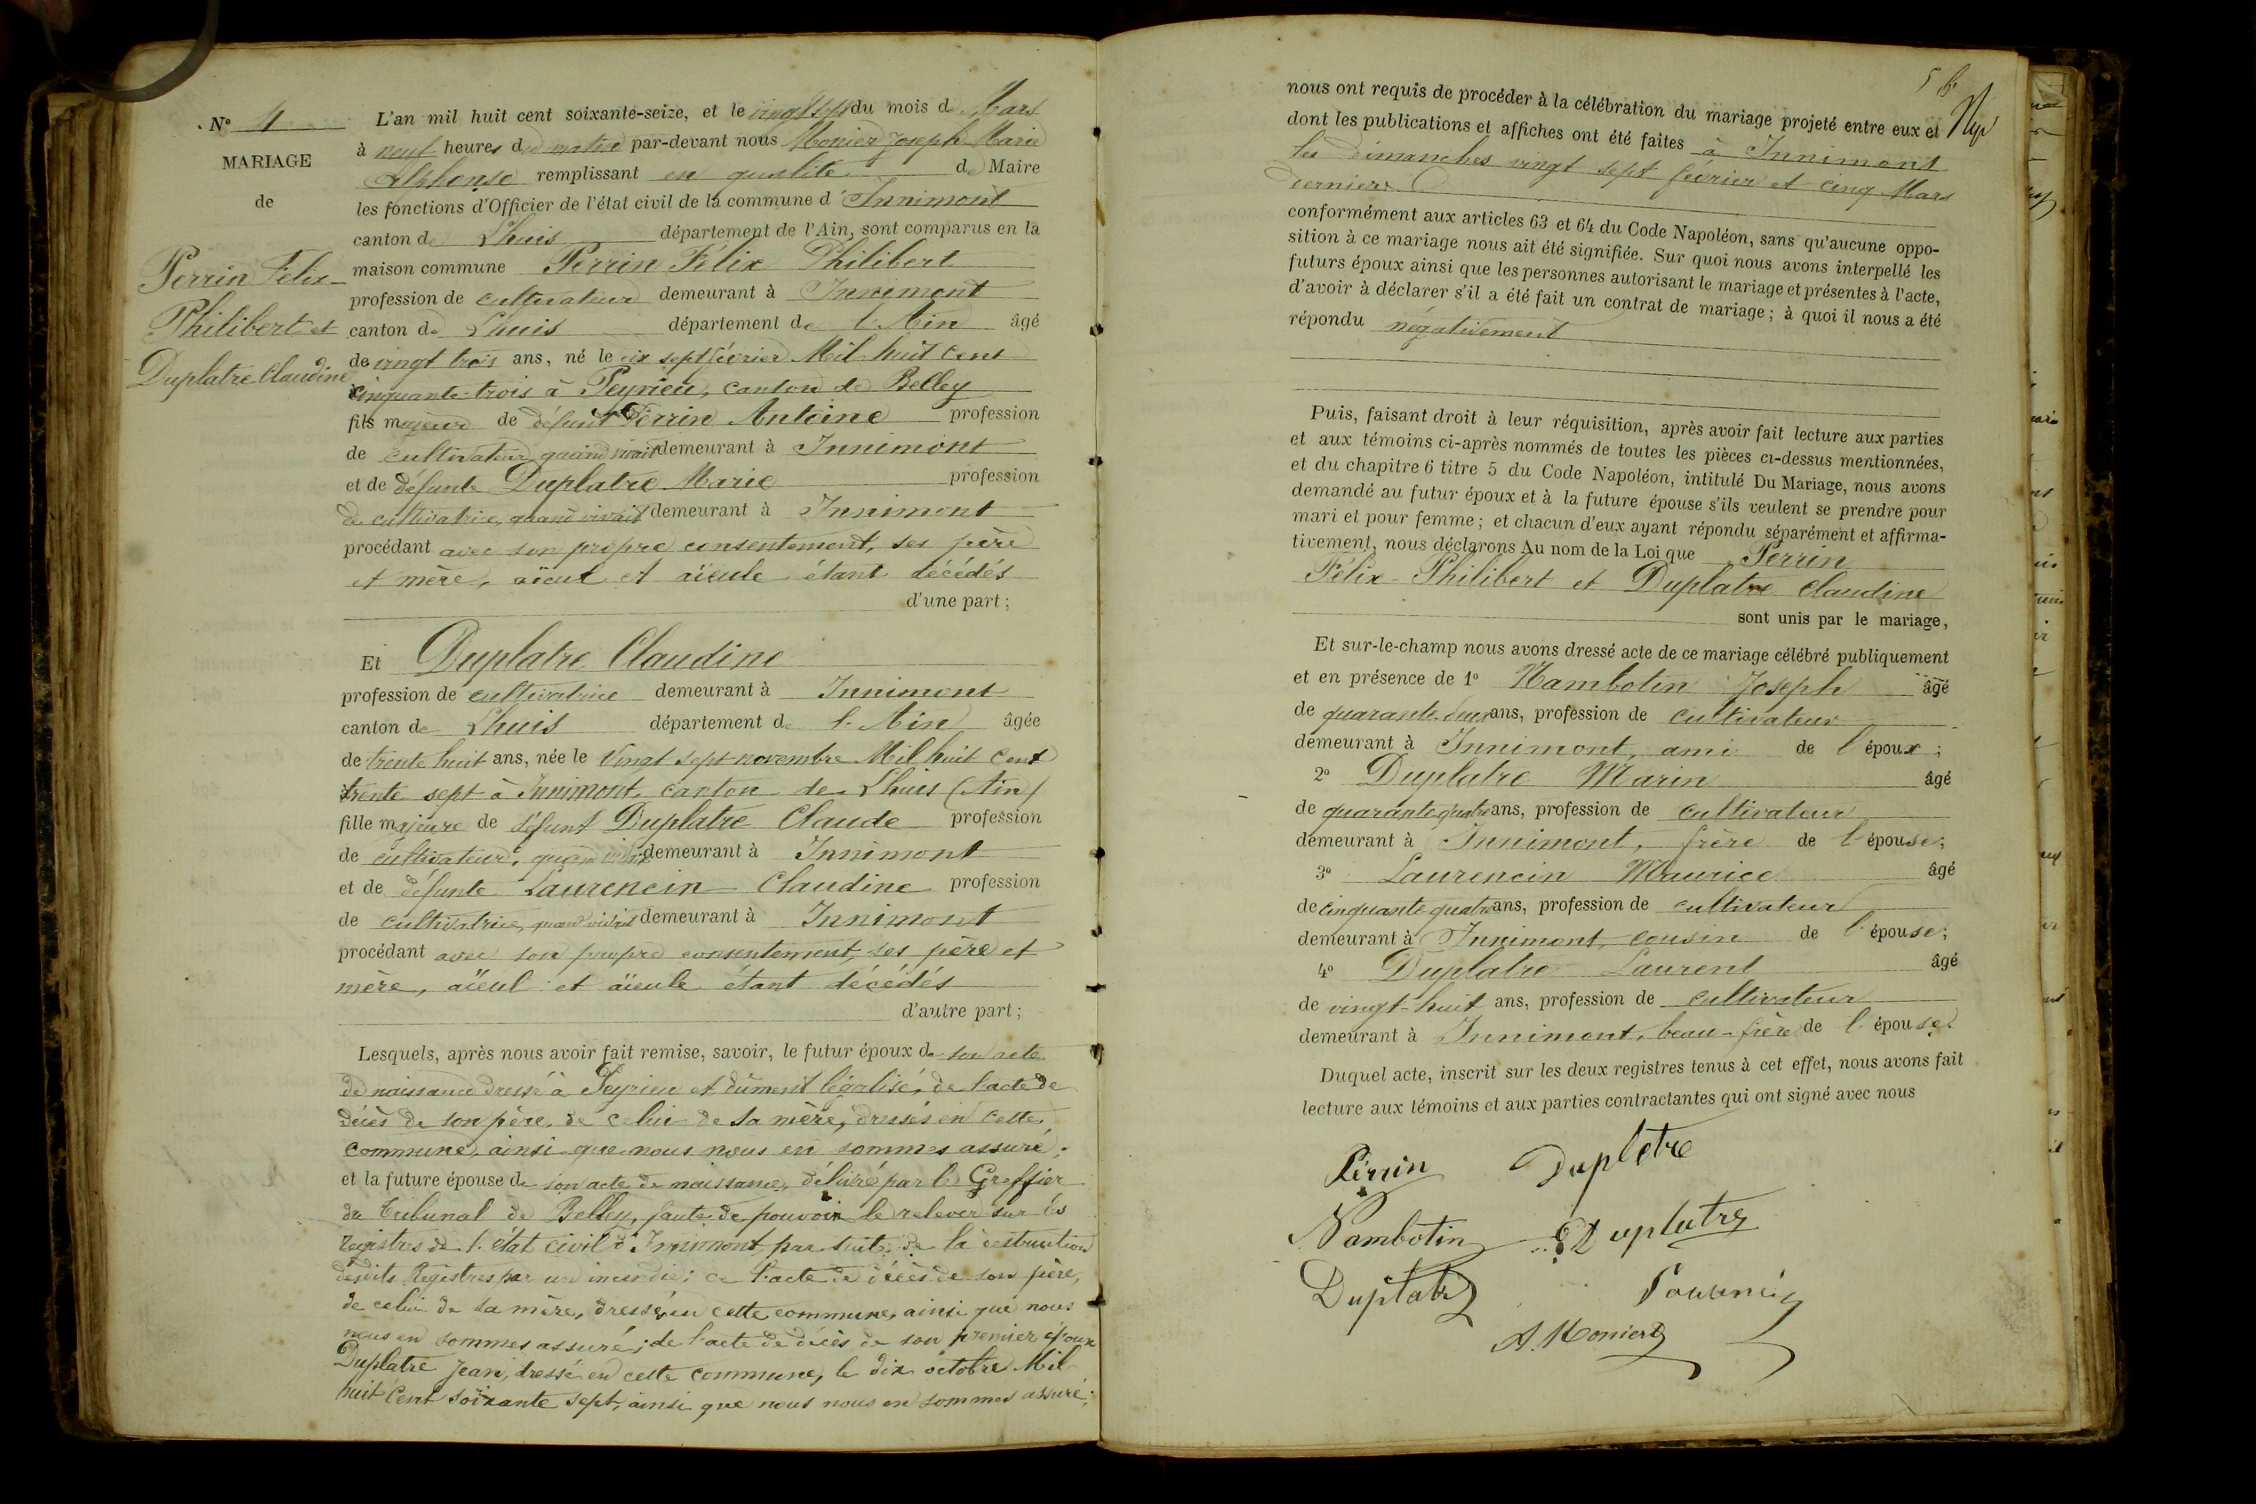 N° 4
MARIAGE
de
Perrin Félix-
Philibert et
Duplatre Claudine
L'an mil huit cent soixante-seize, et le vingt sept du mois de Mars
à neuf heures du matin par-devant nous Monier Joseph Marie
Alphonse remplissant en qualité de Maire
les fonctions d'Officier de l'état civil de la commune d'Innimont
canton de Lhuis département de l'Ain, sont comparus en la
maison commune Perrin Félix Philibert
profession de cultivateur demeurant à Innimont
canton de Lhuis département de l'Ain âgé
de vingt trois ans, né le dix sept février Mil huit cent
cinquante-trois à Peyrieu, canton de Belley
fils majeur de défunt Perrin Antoine profession
de cultivateur, quand vivait demeurant à Innimont
et de défunte Duplatre Marie profession
de cultivatrice, quand vivait demeurant à Innimont
procédant avec son propre consentement, ses père
et mère, aïeul et aïeule étant décédés
d'une part ;
Et Duplatre Claudine
profession de cultivatrice demeurant à Innimont
canton de Lhuis département de l'Ain âgée
de trente huit ans, née le Vingt sept novembre Mil huit cent
trente sept à Innimont, canton de Lhuis (Ain)
fille majeure de défunt Duplatre Claude profession
de cultivateur, quand vivait demeurant à Innimont
et de défunte Laurencin Claudine profession
de cultivatrice, quand vivait demeurant à Innimont
procédant avec son propre consentement, ses père et
mère, aïeul et aïeule étant décédés
d'autre part ;
Lesquels, après nous avoir fait remise, savoir, le futur époux de son acte
de naissance dressé à Peyrieu et dûment légalisé, de l'acte de
décès de son père, de celui de sa mère, dressés en cette
commune, ainsi que nous nous en sommes assuré ;
et la future épouse de son acte de naissance, délivré par le Greffier
du Tribunal de Belley, faute de pouvoir le relever sur les
Registres de l'état civil d'Innimont, par suite de la destruction
desdits Registres par un incendie ; de l'acte de décès de son père,
de celui de sa mère, dressé en cette commune, ainsi que nous
nous en sommes assuré ; de l'acte de décès de son premier époux
Duplatre Jean, dressé en cette commune, le dix octobre Mil
huit Cent soixante sept, ainsi que nous nous en sommes assuré ;
nous ont requis de procéder à la célébration du mariage projeté entre eux et
dont les publications et affiches ont été faites à Innimont
les dimanches vingt sept février et cinq Mars
derniers
conformément aux articles 63 et 64 du Code Napoléon, sans qu'aucune oppo-
sition à ce mariage nous ait été signifiée. Sur quoi nous avons interpellé les
futurs époux ainsi que les personnes autorisant le mariage et présentes à l'acte,
d'avoir à déclarer s'il a été fait un contrat de mariage ; à quoi il nous a été
répondu négativement
Puis, faisant droit à leur réquisition, après avoir fait lecture aux parties
et aux témoins ci-après nommés de toutes les pièces ci-dessus mentionnées,
et du chapitre 6 titre 5 du Code Napoléon, intitulé Du Mariage, nous avons
demandé au futur époux et à la future épouse s'ils veulent se prendre pour
mari et pour femme ; et chacun d'eux ayant répondu séparément et affirma-
tivement, nous déclarons Au nom de la Loi que Perrin
Félix-Philibert et Duplatre Claudine
sont unis par le mariage,
Et sur-le-champ nous avons dressé acte de ce mariage célébré publiquement
et en présence de 1° Nambotin Joseph âgé
de quarante deux ans, profession de cultivateur
demeurant à Innimont, ami de l'époux ;
2° Duplatre Marin âgé
de quarante quatre ans, profession de cultivateur
demeurant à Innimont, frère de l'épouse ;
3° Laurencin Maurice âgé
de cinquante quatre ans, profession de cultivateur
demeurant à Innimont, cousin de l'épouse ;
4° Duplatre Laurent âgé
de vingt-huit ans, profession de cultivateur
demeurant à Innimont, beau-frère de l'épouse.
Duquel acte, inscrit sur les deux registres tenus à cet effet, nous avons fait
lecture aux témoins et aux parties contractantes qui ont signé avec nous
Perrin Dupletre
Nambotin Duplatre
Duplatre
A. Monier